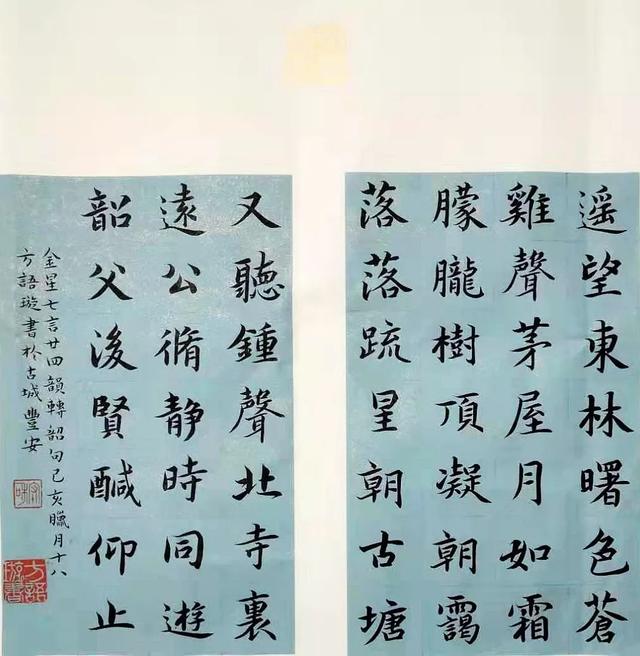 遥望東林曙色蒼
雞聲茅屋月如霜
朦朧樹頂凝朝靄
落落疏星朝古塘
又聽鍾聲北寺裏
遠公脩静時同遊
韶父後賢醎仰止
金星七言廿四韻轉韶句己亥臘月十八
方語璇書於古城豐安